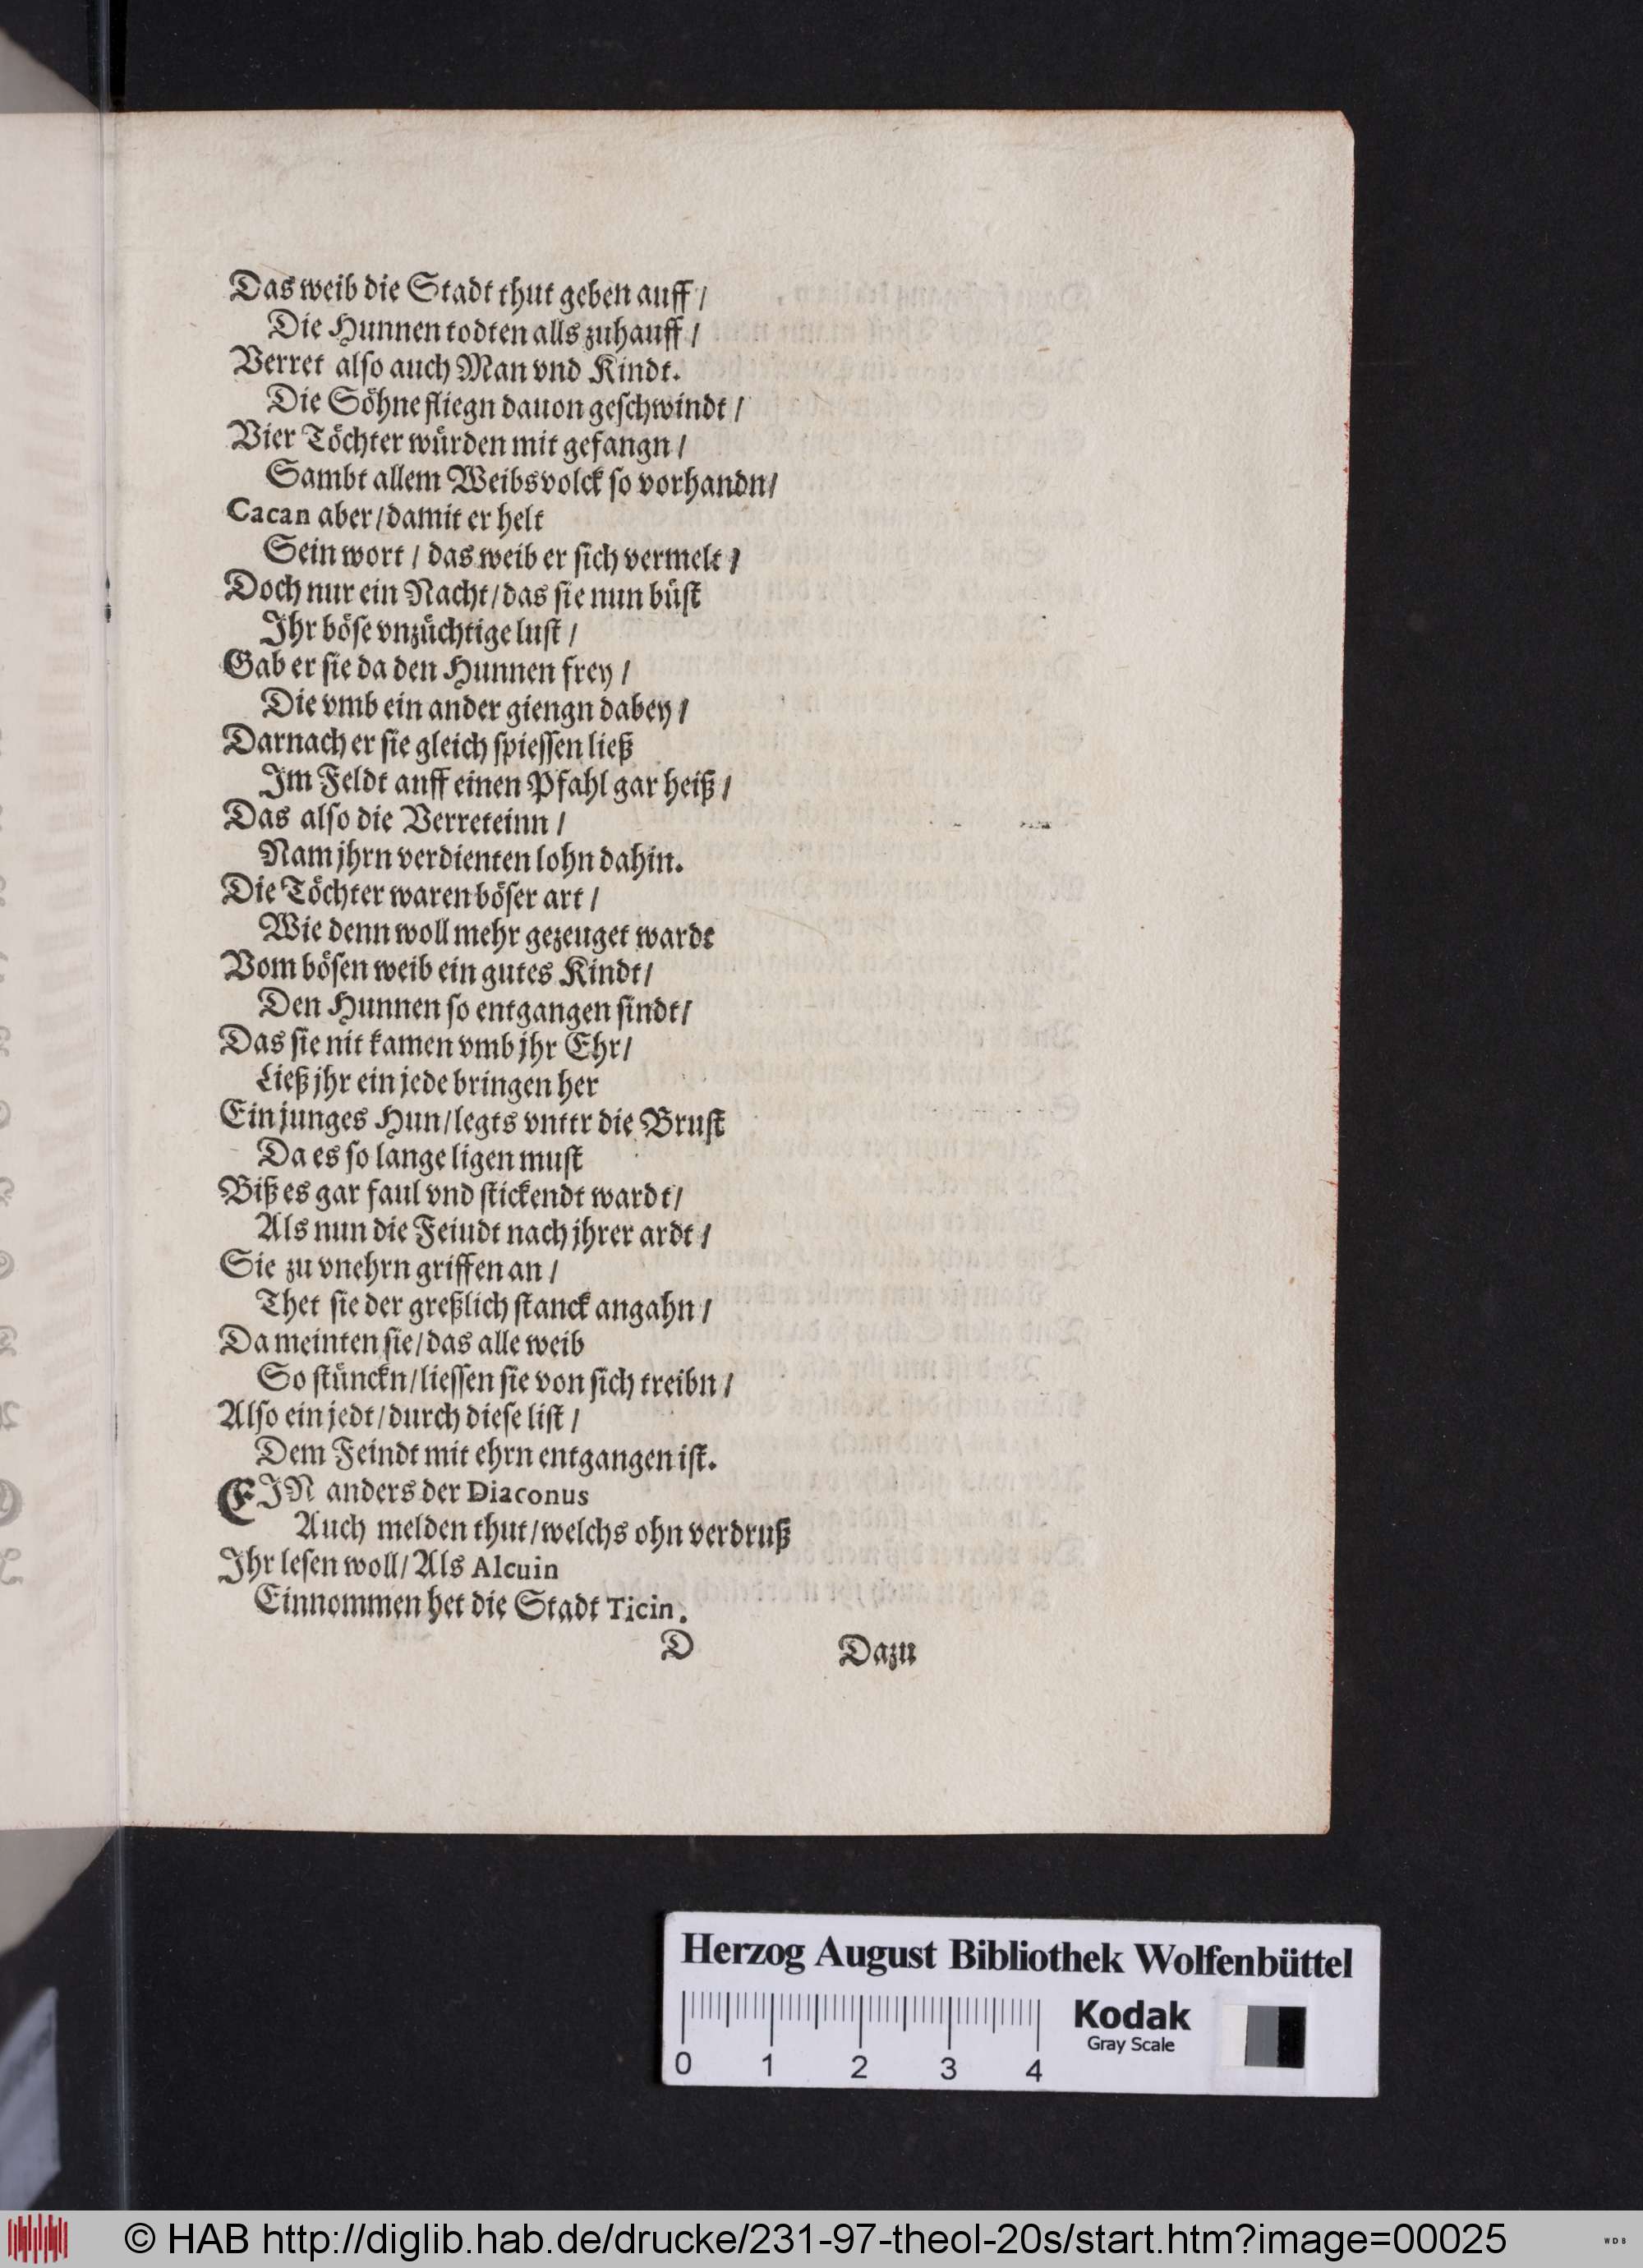 Das weib die Stadt thut geben auff /
Die Hunnen todten alls zuhauff /
Verret also auch Man vnd Kindt.
Die Söhne fliegn dauon geschwindt /
Vier Töchter würden mit gefangn /
Sambt allem Weibsvolck so vorhandn/
Cacan aber/damit er helt
Sein wort / das weib er sich vermelt /
Doch nur ein Nacht/das sie nun büst
Ihr böse vnzüchtige lust /
Gab er sie da den Hunnen frey /
Die vmb ein ander giengn dabey /
Darnach er sie gleich spiessen ließ
Im Feldt anff einen Pfahl gar heiß /
Das also die Verreteinn /
Nam jhrn verdienten lohn dahin.
Die Töchter waren böser art /
Wie denn woll mehr gezeuget wardt
Vom bösen weib ein gutes Kindt/
Den Hunnen so entgangen sindt/
Das sie nit kamen vmb jhr Ehr/
Ließ jhr ein jede bringen her
Ein junges Hun/legts vnttr die Brust
Da es so lange ligen must
Biß es gar faul vnd stickendt wardt/
Als nun die Feiudt nach jhrer ardt /
Sie zu vnehrn griffen an /
Thet sie der greßlich stanck angahn /
Da meinten sie/das alle weib
So stünckn/liessen sie von sich treibn /
Also ein jedt/durch diese list /
Dem Feindt mit ehrn entgangen ist.
EIN anders der Diaconus
Auch melden thut/welchs ohn verdruß
Ihr lesen woll/Als Alcuin
Einnommen het die Stadt Ticin.
D Dazu
Herzog August Bibliothek Wolfenbüttel
Kodak
Gray Scale
0 1 2 3 4
© HAB http://diglib.hab.de/drucke/231-97-theol-20s/start.htm?image=00025